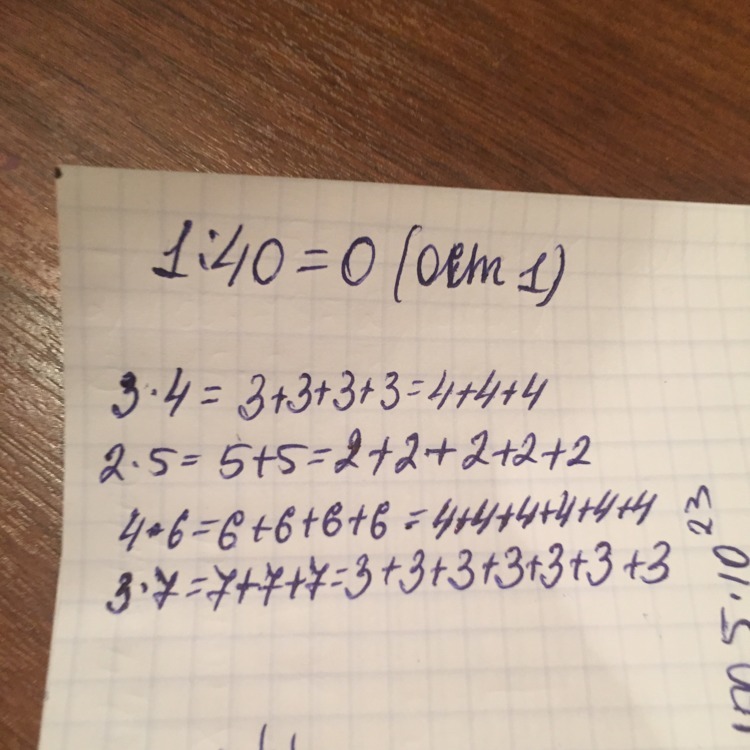 1:40=0 (Ост 1)
3·4= 3+3+3+3=4+4+4
2·5= 5+5=2+2+2+2+2
4·6=6+6+6+6=4+4+4+4+4+4
3·7=7+7+7=3+3+3+3+3+3+3
5·10
23